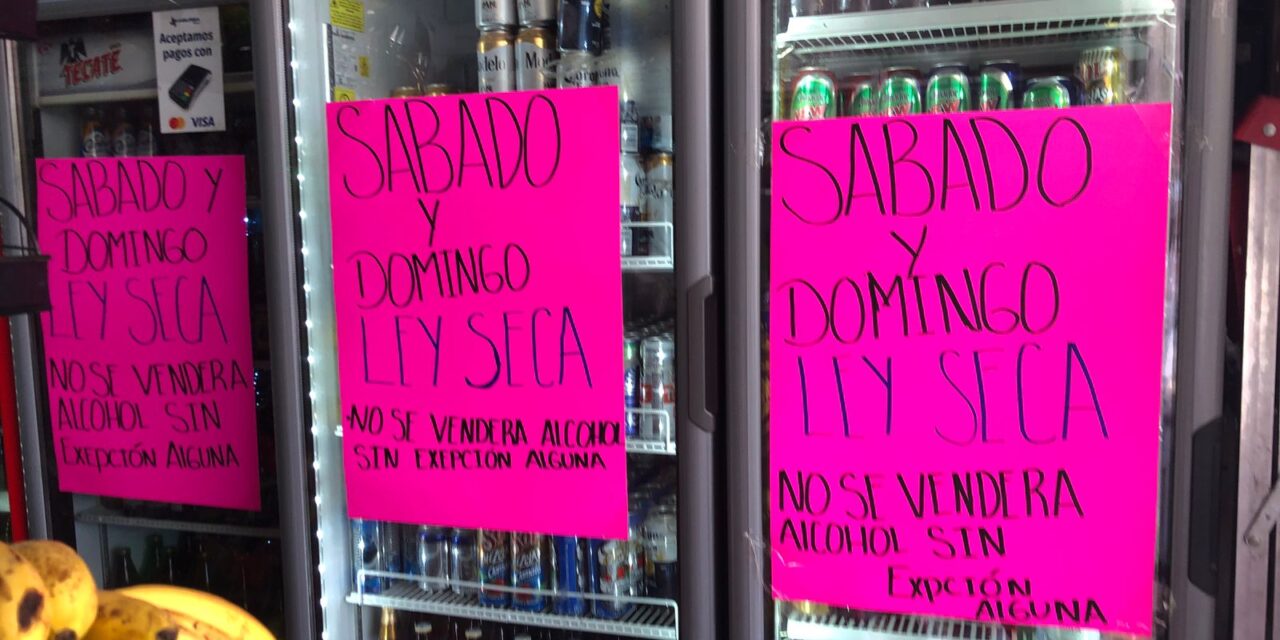 TECATE
Aceptamos
pagos con
VISA
SABADO Y
DOMINGO
LEY SECA
NO SE VENDERA
ALCOHOL SIN
EXEPCIÓN ALGUNA
Modelo
SABADO
Y
DOMINGO
LEY SECA
-NO SE VENDERA ALCOHOL
SIN EXEPCIÓN ALGUNA
SABADO
Y
DOMINGO
LEY SECA
NO SE VENDERA
ALCOHOL SIN
EXPCIÓN
ALGUNA